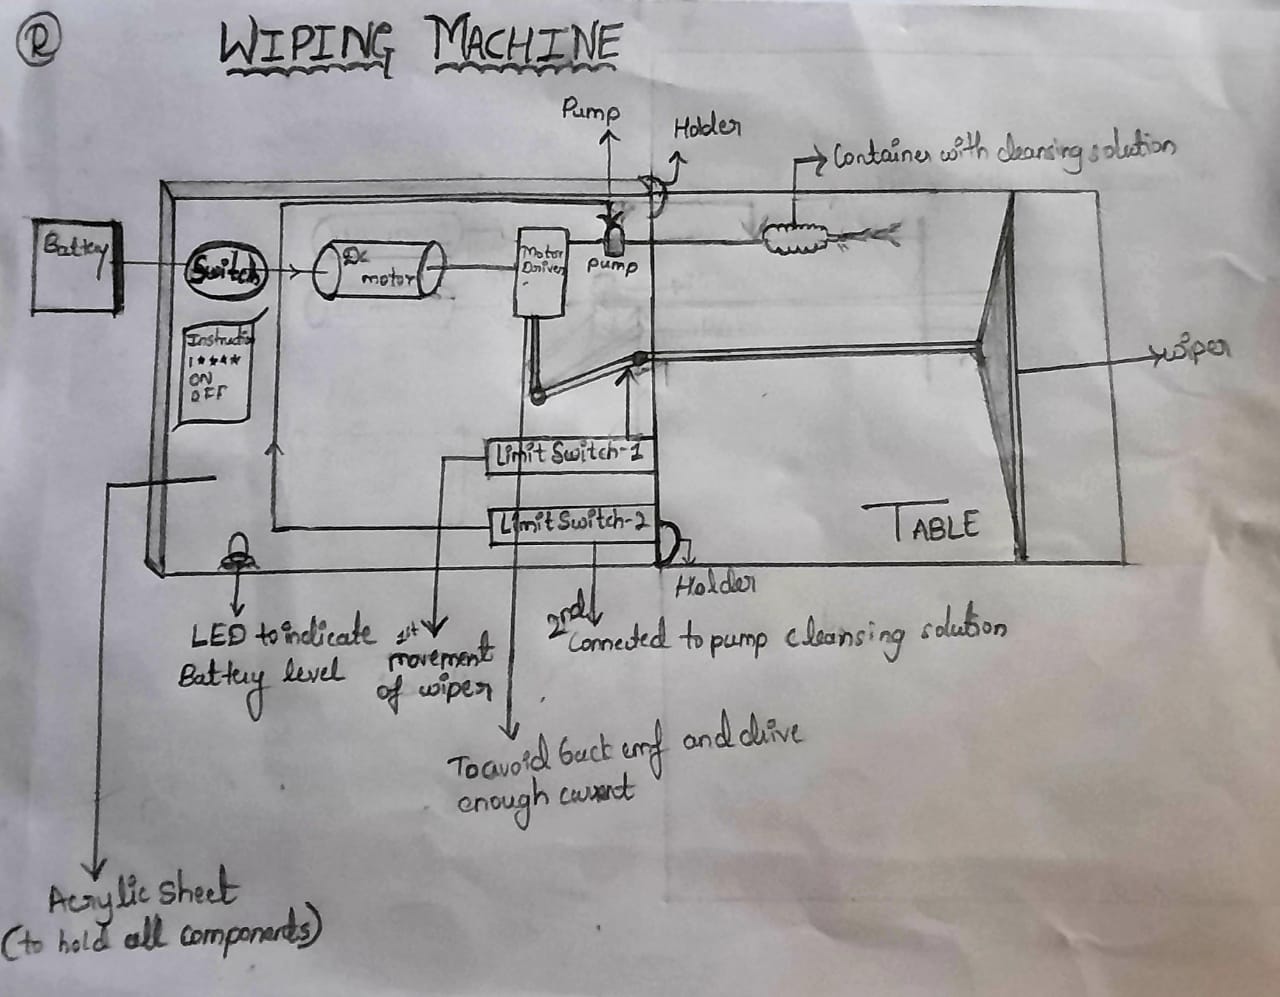 R
WIPING MACHINE
Pump
Holder
Container with cleansing solution
Battery
Switch
DC
motor
Motor
Driver
pump
Instructi
1 ****
ON
OFF
wiper
Limit Switch-1
Limit Switch-2
TABLE
Holder
LED to indicate
Battery level
1st
movement
of wiper
2nd
Connected to pump cleansing solution
To avoid back emf and drive
enough current
Acrylic sheet
(to hold all components)